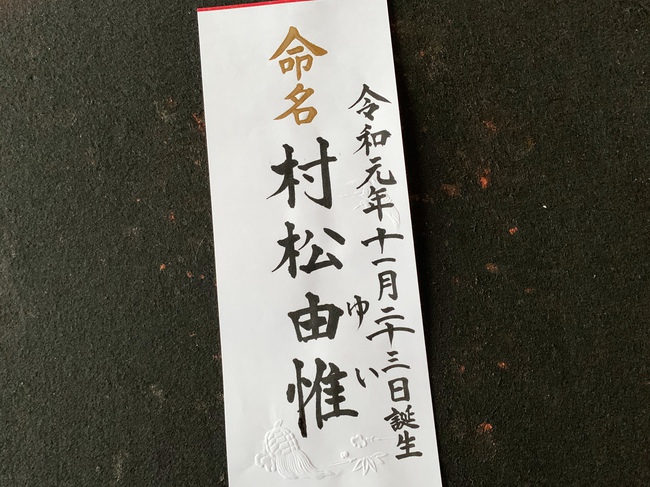 令和元年十一月二十三日誕生
命名
村松由惟
ゆい